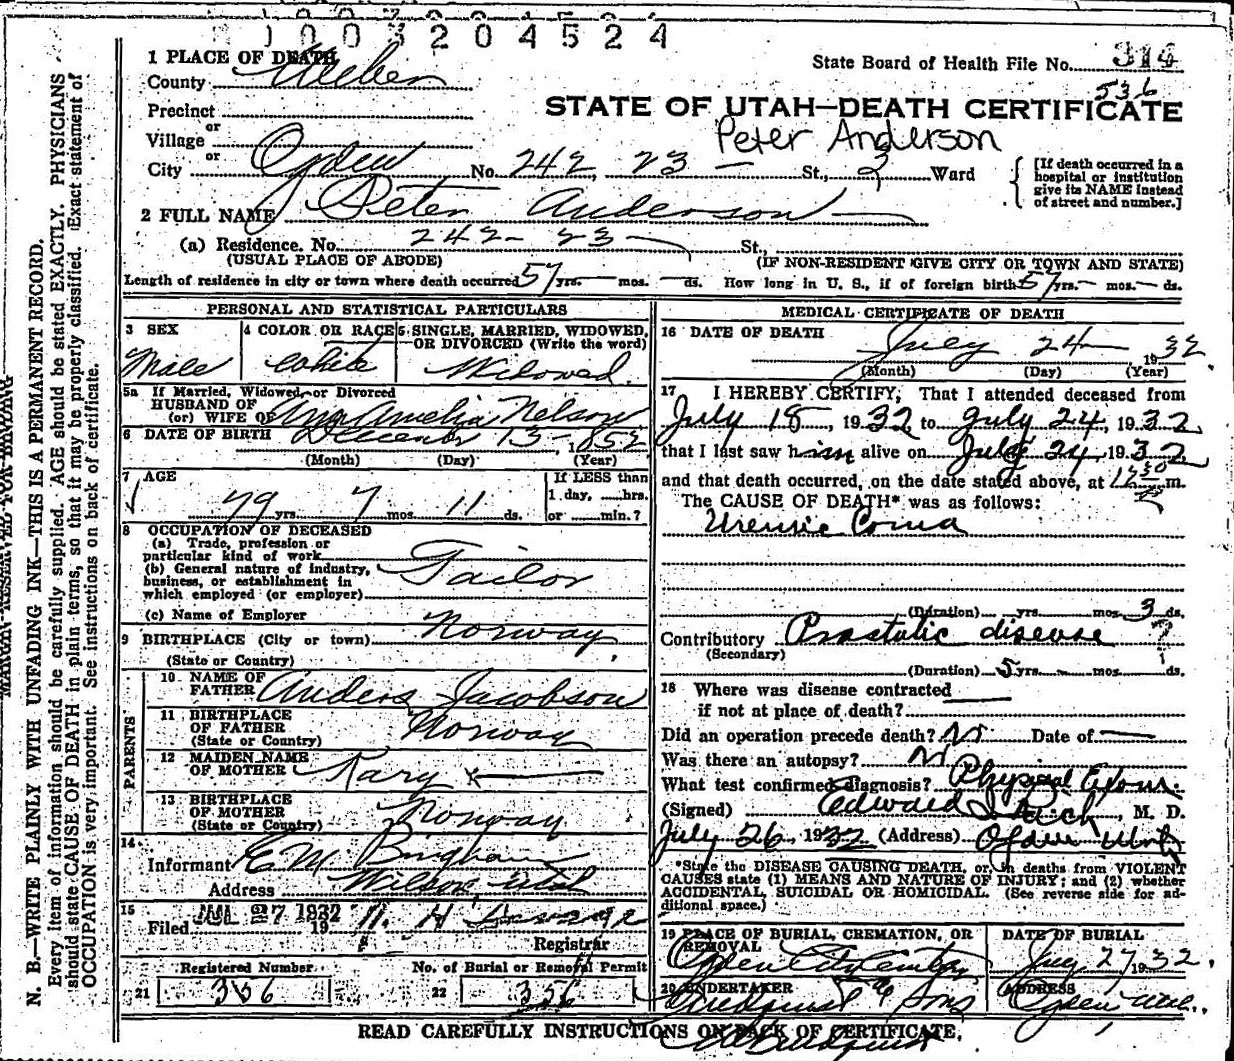 1003204524
1 PLACE OF DEATH
State Board of Health File No. 314
County Weber
536
Precinct
STATE OF UTAH—DEATH CERTIFICATE
or
Village
Peter Anderson
or
City Ogden No. 242, 23 — St., 2 Ward
[If death occurred in a hospital or institution give its NAME instead of street and number.]
2 FULL NAME Peter Anderson
(a) Residence. No. 242 - 23 — St.
(USUAL PLACE OF ABODE) (IF NON-RESIDENT GIVE CITY OR TOWN AND STATE)
Length of residence in city or town where death occurred 57 yrs. — mos. — ds. How long in U. S., if of foreign birth 57 yrs. — mos. — ds.
PERSONAL AND STATISTICAL PARTICULARS
3 SEX
Male
4 COLOR OR RACE
White
5 SINGLE, MARRIED, WIDOWED,
OR DIVORCED (Write the word)
Widowed.
5a If Married, Widowed, or Divorced
HUSBAND OF
(or) WIFE OF Amelia Nelson
6 DATE OF BIRTH December 13 - , 1852
(Month) (Day) (Year)
7 AGE
79 yrs. 7 mos. 11 ds.
If LESS than
1 day, hrs.
or min.?
8 OCCUPATION OF DECEASED
(a) Trade, profession or
particular kind of work
Tailor
(b) General nature of industry,
business, or establishment in
which employed (or employer)
(c) Name of Employer
9 BIRTHPLACE (City or town) Norway
(State or Country)
PARENTS
10 NAME OF
FATHER Anders Jacobson
11 BIRTHPLACE
OF FATHER
(State or Country) Norway
12 MAIDEN NAME
OF MOTHER Kary x
13 BIRTHPLACE
OF MOTHER
(State or Country) Norway
14
Informant E. M. Bingham
Address Wilson, Utah
15
Filed JUL 27 1932
Registrar
Registered Number No. of Burial or Removal Permit
21 366 22 356
MEDICAL CERTIFICATE OF DEATH
16 DATE OF DEATH
July 24 1932
(Month) (Day) (Year)
17 I HEREBY CERTIFY, That I attended deceased from
July 18, 1932 to July 24, 1932
that I last saw him alive on July 24, 1932
and that death occurred, on the date stated above, at 12 30 m.
The CAUSE OF DEATH* was as follows:
Uremic Coma
(Duration) yrs. mos. 3 ds.
Contributory Prostatic disease ?
(Secondary)
(Duration) 5 yrs. — mos. ds.
18 Where was disease contracted
if not at place of death?
Did an operation precede death? No. Date of —
Was there an autopsy? No
What test confirmed diagnosis? Physical Exam.
(Signed) Edward I Rich, M. D.
July 26, 1932 (Address) Ogden Utah
*State the DISEASE CAUSING DEATH, or, in deaths from VIOLENT
CAUSES state (1) MEANS AND NATURE OF INJURY; and (2) whether
ACCIDENTAL, SUICIDAL OR HOMICIDAL. (See reverse side for ad-
ditional space.)
19 PLACE OF BURIAL, CREMATION, OR
REMOVAL
Ogden City Cemetery
DATE OF BURIAL
July 27 1932.
20 UNDERTAKER
Lindquist & Sons
ADDRESS
Ogden Utah.
READ CAREFULLY INSTRUCTIONS ON BACK OF CERTIFICATE.
MARGIN RESERVED FOR BINDING
N. B.—WRITE PLAINLY WITH UNFADING INK—THIS IS A PERMANENT RECORD.
Every item of information should be carefully supplied. AGE should be stated EXACTLY. PHYSICIANS
should state CAUSE OF DEATH in plain terms, so that it may be properly classified. Exact statement of
OCCUPATION is very important. See instructions on back of certificate.